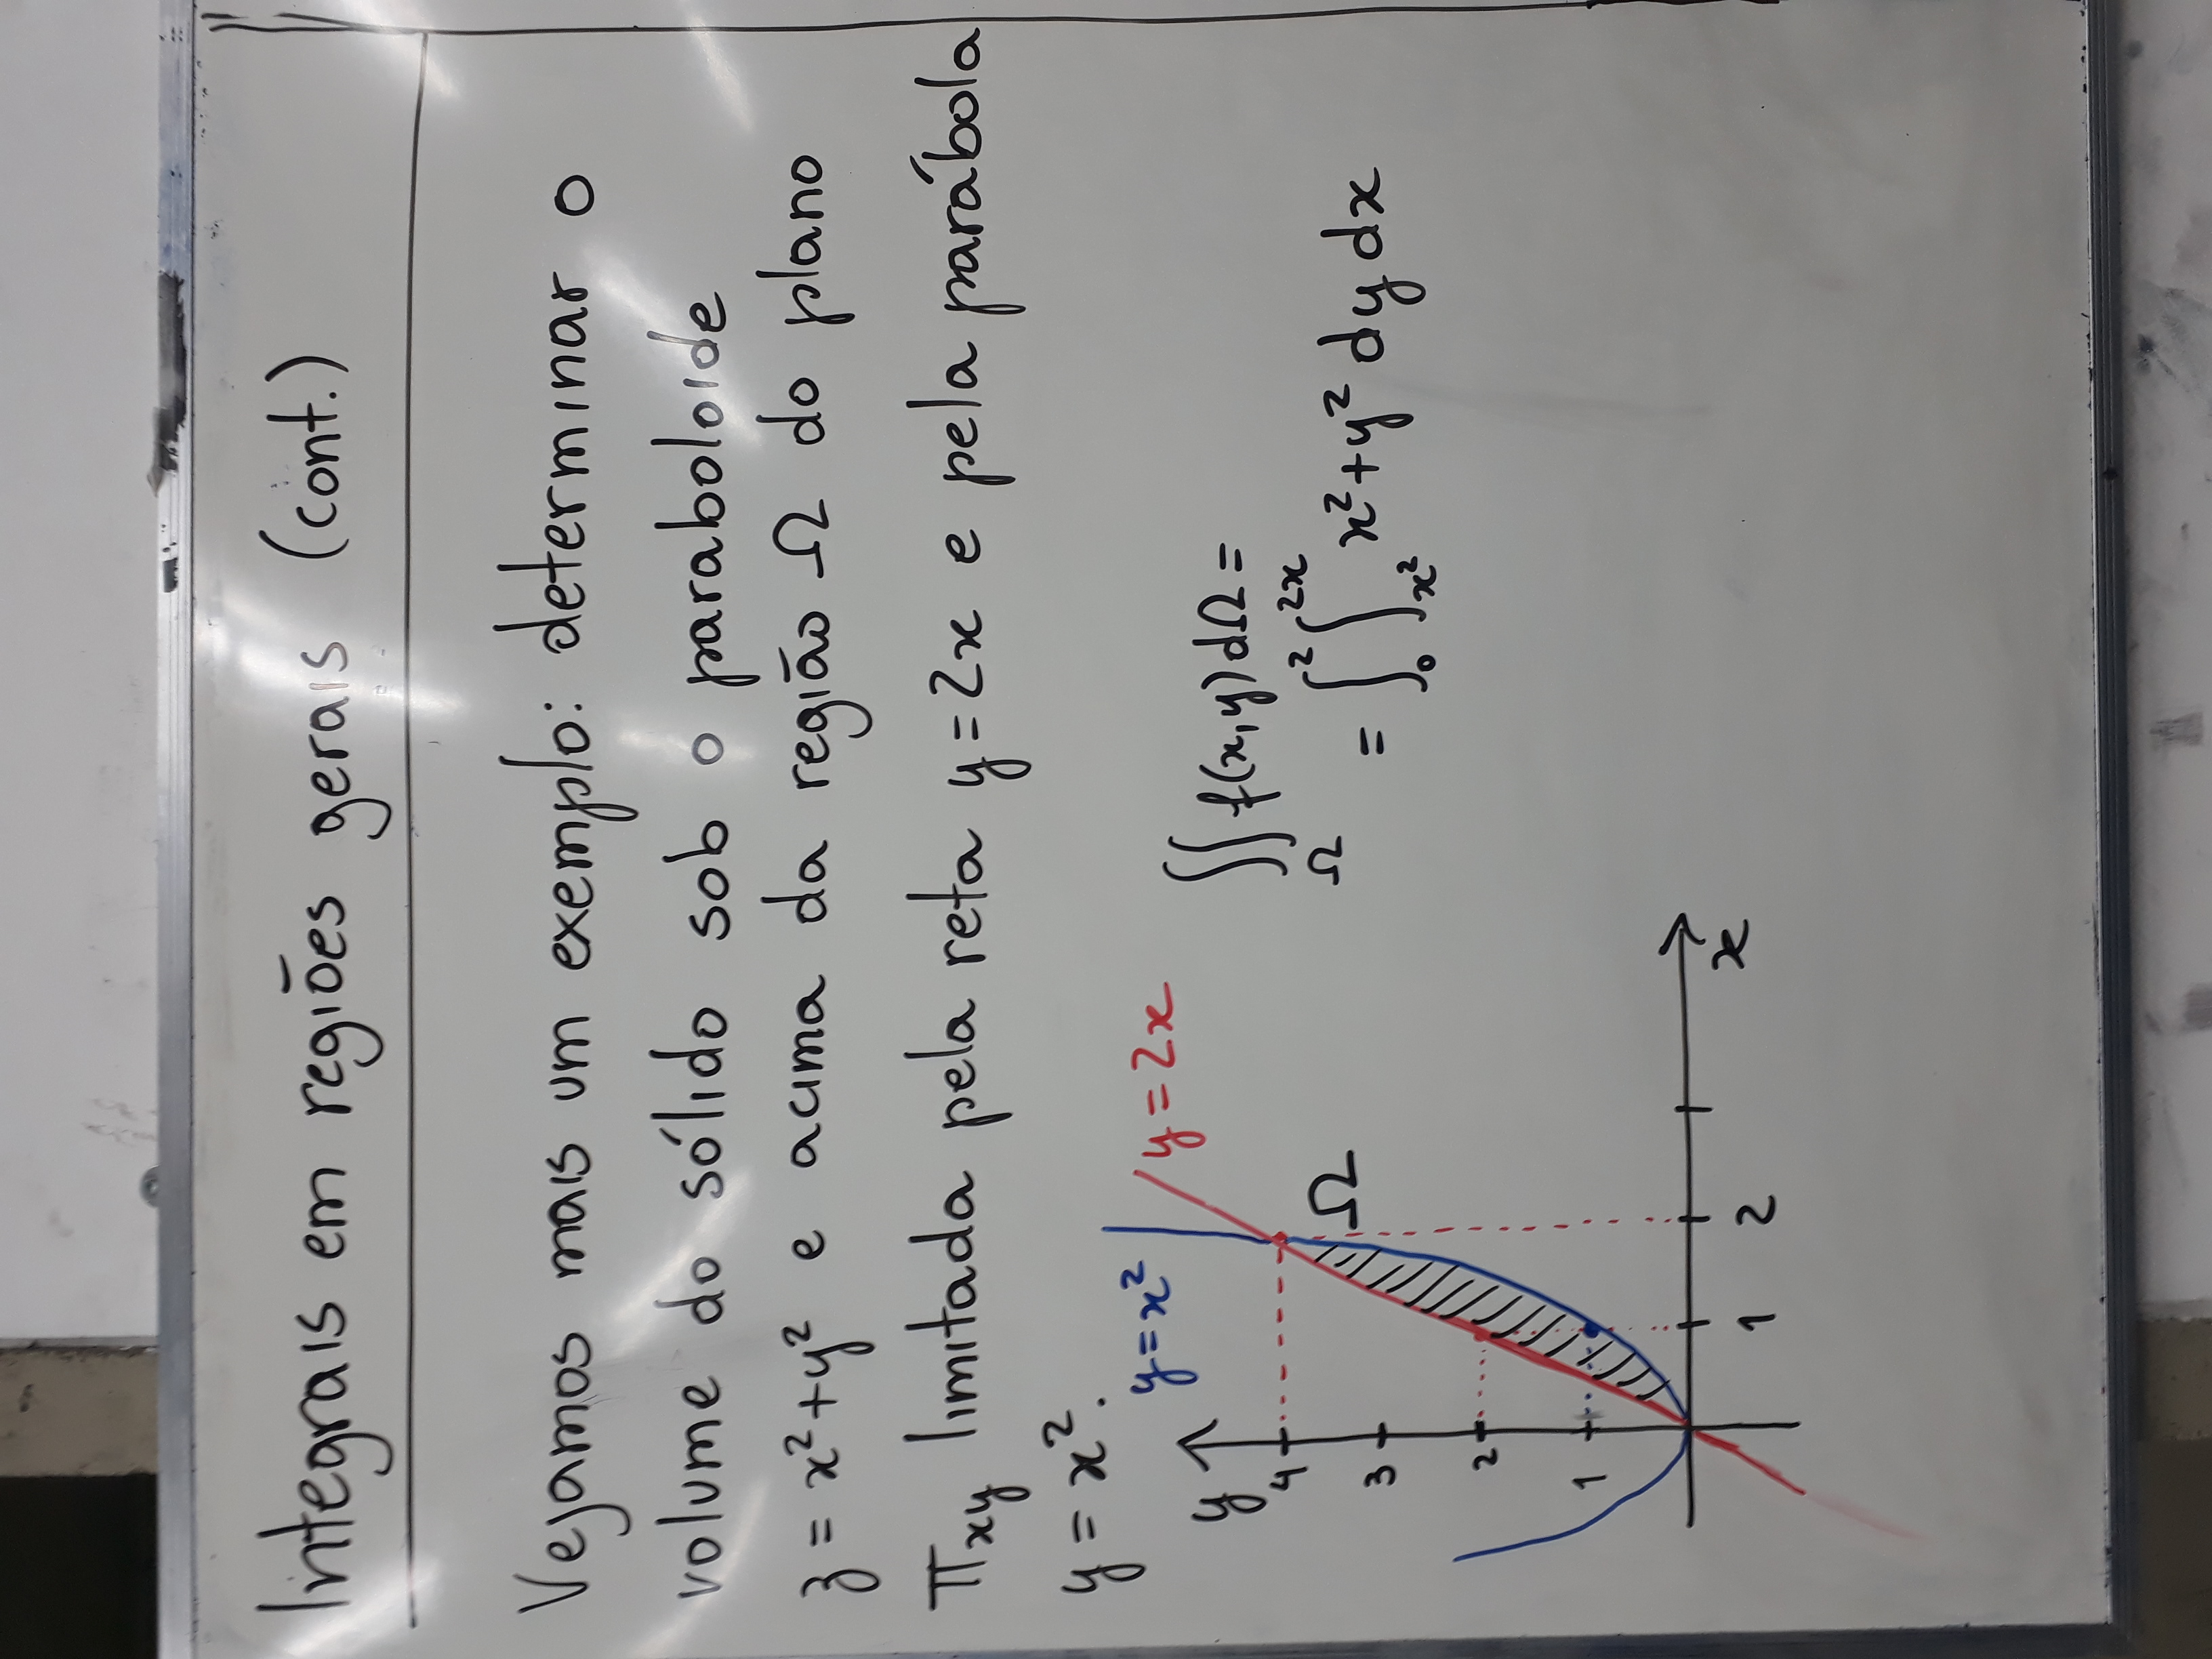 Integrais em regiões gerais (cont.)
Vejamos mais um exemplo: determinar o
volume do sólido sob o paraboloide
z = x²+y² e acima da região Ω do plano
π_xy limitada pela reta y=2x e pela parábola
y = x².
y=x²
y=2x
y
4
3
2
1
Ω
1 2
x
∬_Ω f(x,y)dΩ =
= ∫_0^2 ∫_{x²}^{2x} x²+y² dy dx